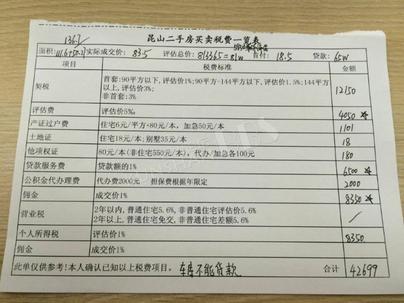 1367
昆山二手房买卖税费一览表
面积: 实际成交价: 83.5 评估总价: 813365=81w 首付: 18.5 贷款: 65w
项目 税费标准 金额
契税 首套:90平方以下,评估价1%;90平方-144平方,评估价1.5%;144平方
以上,评估价3%; 12150
非首套:3%
评估费 评估价5‰ 4050
产证过户费 住宅6元/平方+80元/本,加急50元/本 1101
土地证 住宅18元/本;别墅35元/本 18
他项权证 80元/本(非住宅550元/本),代办/加急各100元 180
贷款服务费 贷款额的1% 6500
公积金代办理费 代办费2000元 担保费根据年限定 2000
佣金 成交价1% 8350
营业税 2年以内,普通住宅5.6%,非普通住宅评估价5.6%
2年以上,普通住宅免交,非普通住宅差额5.6%
个人所得税 评估价1% 8350
佣金 成交价1%
此单仅供参考!本人确认已知以上税费项目。 车库不能贷款 合计 42699